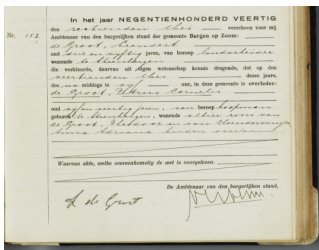 In het jaar NEGENTIENHONDERD VEERTIG
den zestienden Mei verscheen voor mij
Nr. 152 Ambtenaar van den burgerlijken stand der gemeente Bergen op Zoom:
de Groot, Leendert
oud drie en vijftig jaren, van beroep landarbeider
wonende te Steenbergen
die verklaarde, daarvan uit eigen wetenschap kennis dragende, dat op den
veertienden Mei dezes jaars,
des na middags te vijf uur, in deze gemeente is overleden:
de Groot, Petrus Cornelis
oud jaren, van beroep koopman
geboren te Steenbergen, wonende alhier zoon van
de Groot, en van
Anna Adriana beiden overleden
Waarvan akte, welke overeenkomstig de wet is voorgelezen.
De Ambtenaar van den burgerlijken stand,
L de Groot